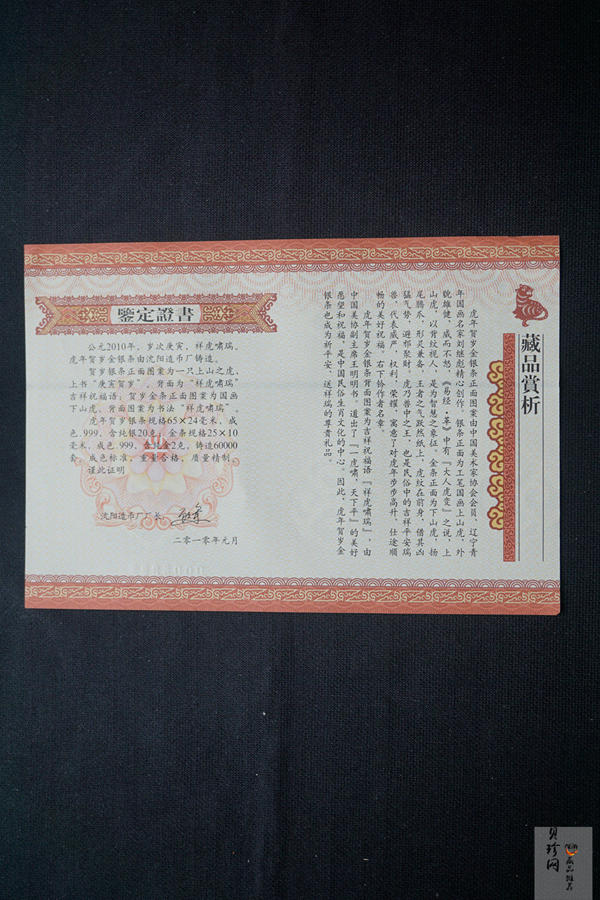 鑒定證書
公元2010年，岁次庚寅，祥虎啸瑞，
虎年贺岁金银条由沈阳造币厂铸造。
贺岁银条正面图案为一只上山之虎，
上书“庚寅贺岁”，背面为“祥虎啸瑞”
吉祥祝福语；贺岁金条正面图案为国画
下山虎，背面图案为书法“祥虎啸瑞”。
虎年贺岁银条规格65×24毫米，成
色.999，含纯银20克；金条规格25×10
毫米，成色.999，含纯金2克，铸造60000
套，成色标准，重量合格，质量精制，
谨此证明
沈阳造币厂厂长
二零一零年元月
藏品赏析
虎年贺岁金银条正面图案由中国美术家协会会员，辽宁青
年国画名家刘继彪精心创作。银条正面为工笔国画上山虎，外
貌雄健，威而不怒，《易经·革》中有“大人虎变”之说，上
山虎，以背纹祝人，是为智慧之象征。金条正面为下山虎，扬
尾腾爪，形灵兼备，王者之气跃然纸上，虎纹在前身，借其凶
猛气势，避邪聚财。虎乃兽中之王，也是民俗中的吉祥平安瑞
兽，代表威严，权利，荣耀，寓意了对虎年步步高升，仕途顺
畅的美好祝福。右下铃作者名章。
虎年贺岁金银条背面图案为吉祥祝福语『祥虎啸瑞』，由
中国美协副主席王明明书，道出了『一虎啸，天下平』的美好
愿望和祝福，是中国民俗生肖文化的中心。因此，虎年贺岁金
银条也成为祈平安、送祥瑞的尊贵礼品。
贝珍网
藏品推荐